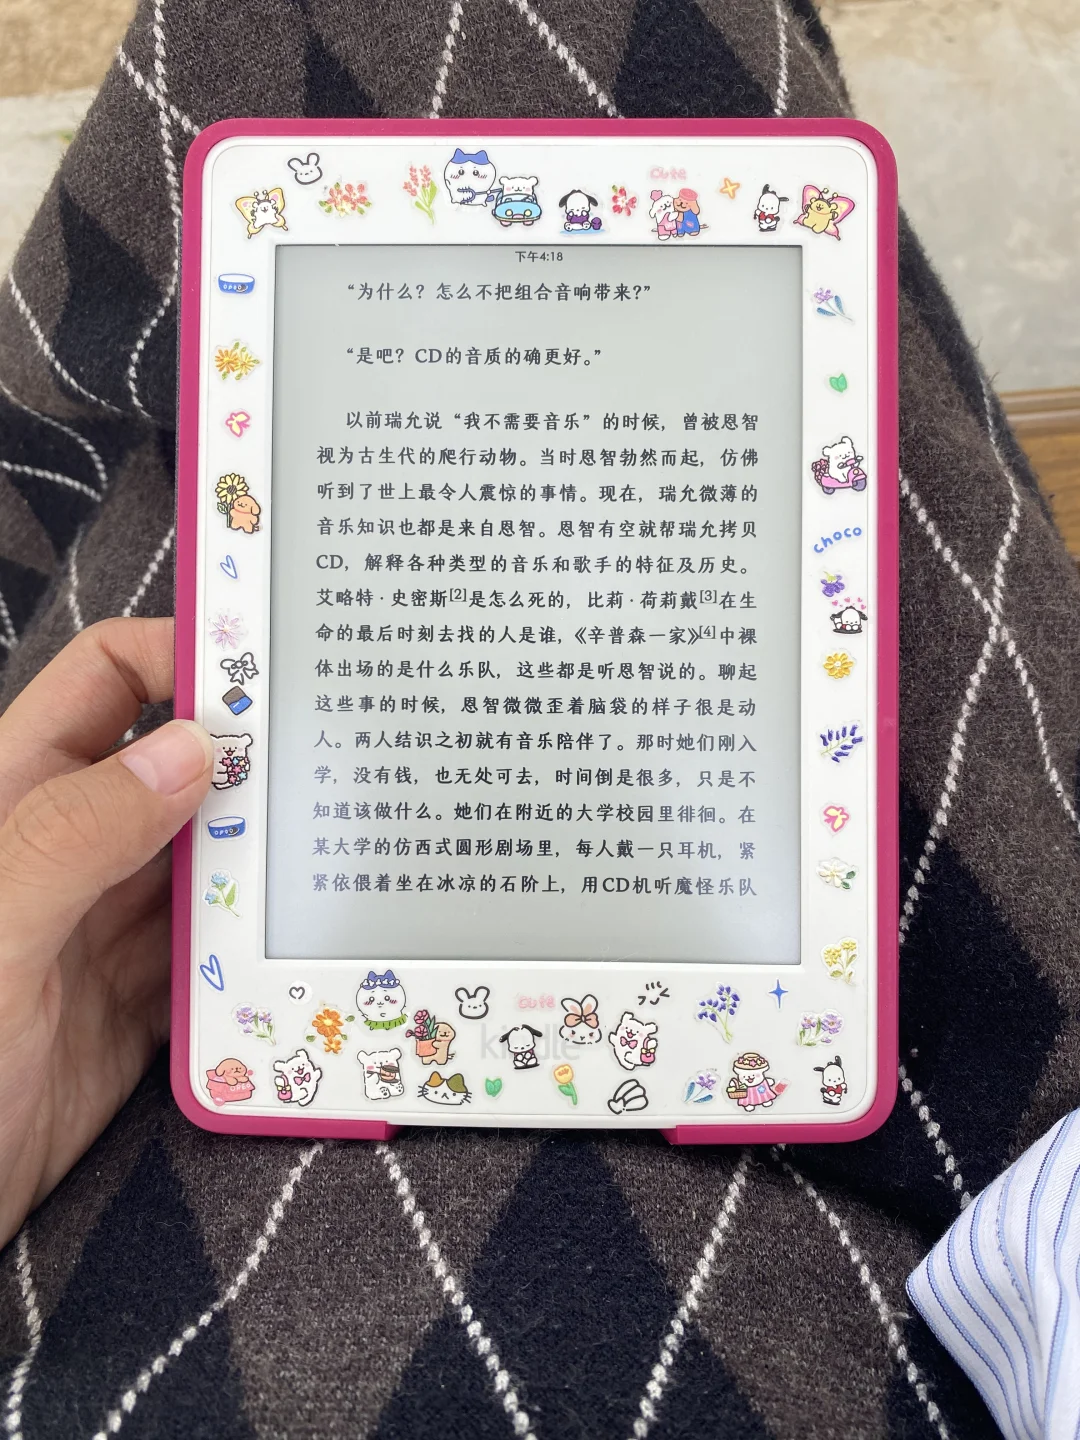 cute
下午4:18
“为什么？怎么不把组合音响带来?”
“是吧？CD的音质的确更好。”
以前瑞允说“我不需要音乐”的时候，曾被恩智
视为古生代的爬行动物。当时恩智勃然而起，仿佛
听到了世上最令人震惊的事情。现在，瑞允微薄的
音乐知识也都是来自恩智。恩智有空就帮瑞允拷贝
CD，解释各种类型的音乐和歌手的特征及历史。
艾略特·史密斯[2]是怎么死的，比莉·荷莉戴[3]在生
命的最后时刻去找的人是谁，《辛普森一家》[4]中裸
体出场的是什么乐队，这些都是听恩智说的。聊起
这些事的时候，恩智微微歪着脑袋的样子很是动
人。两人结识之初就有音乐陪伴了。那时她们刚入
学，没有钱，也无处可去，时间倒是很多，只是不
知道该做什么。她们在附近的大学校园里徘徊。在
某大学的仿西式圆形剧场里，每人戴一只耳机，紧
紧依偎着坐在冰凉的石阶上，用CD机听魔怪乐队
choco
cute
kindle